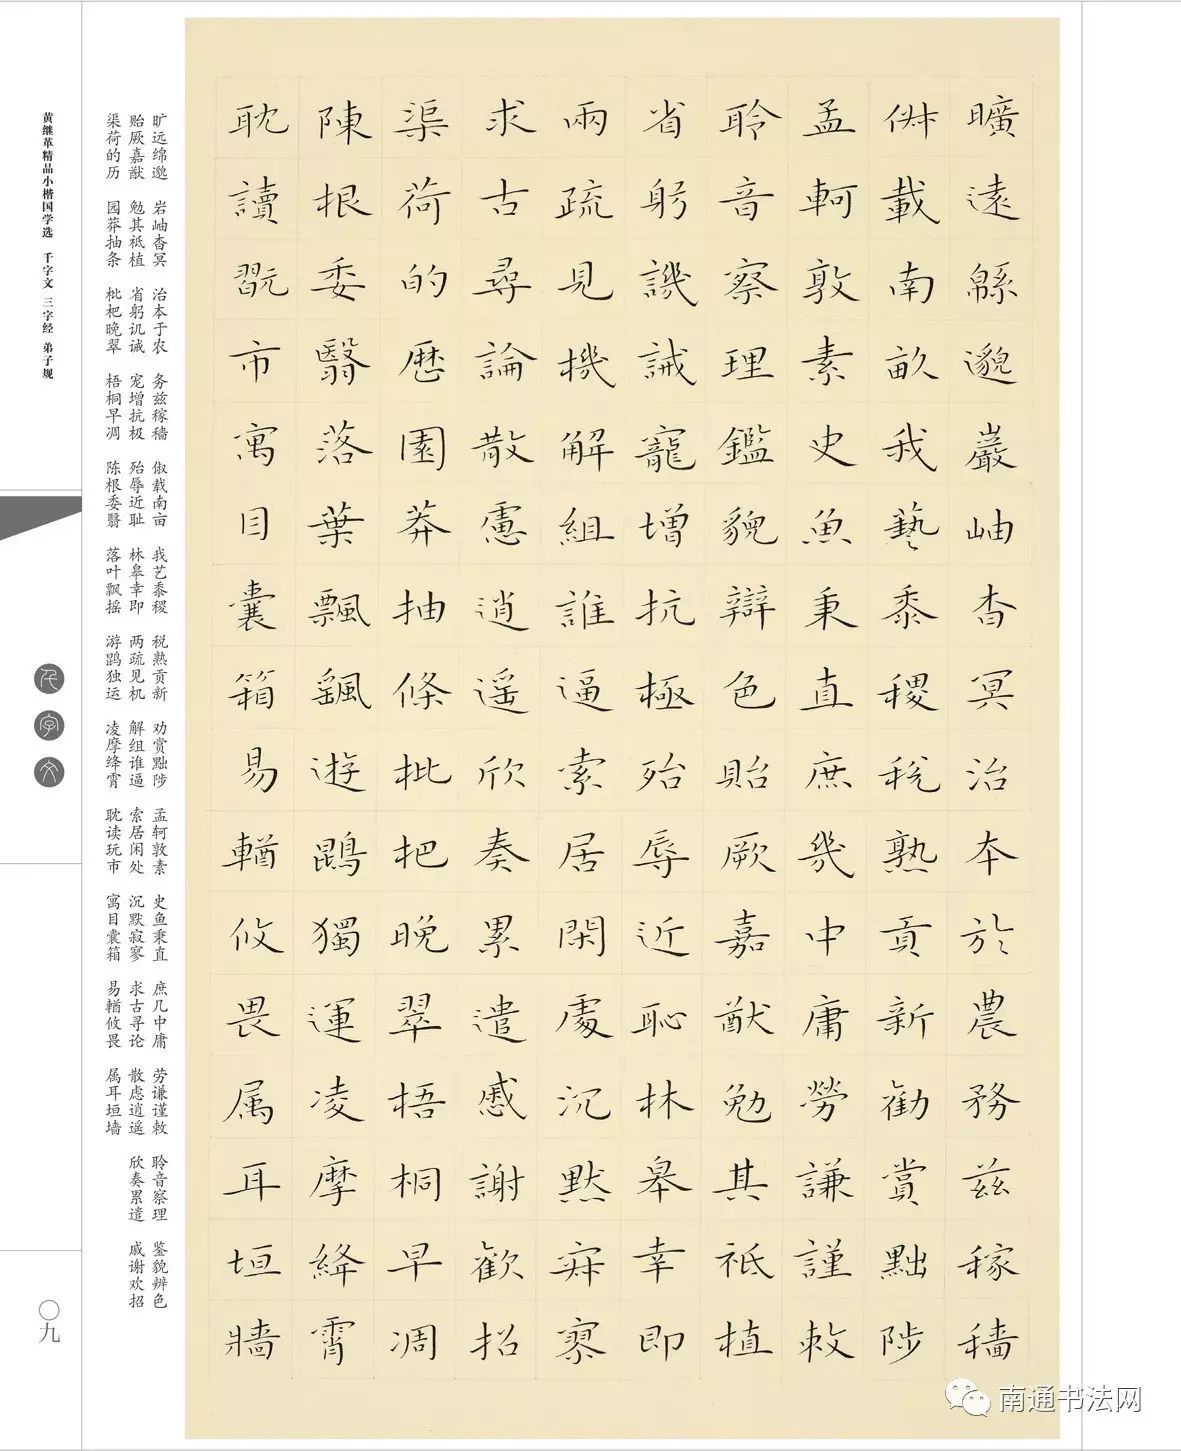 曠遠緜邈巖岫杳冥治本於農務茲稼穡
俶載南畝我藝黍稷稅熟貢新勸賞黜陟
孟軻敦素史魚秉直庶幾中庸勞謙謹敕
聆音察理鑑貌辯色貽厥嘉猷勉其祗植
省躬譏誡寵增抗極殆辱近恥林皋幸即
兩疏見機解組誰逼索居閑處沉默寂寥
求古尋論散慮逍遥欣奏累遣慼謝歡招
渠荷的歷園莽抽條枇杷晚翠梧桐早凋
陳根委翳落葉飄颻遊鵾獨運凌摩絳霄
耽讀翫市寓目囊箱易輶攸畏属耳垣牆
旷远绵邈 岩岫杳冥 治本于农 务兹稼穑 俶载南亩 我艺黍稷 税熟贡新 劝赏黜陟 孟轲敦素 史鱼秉直 庶几中庸 劳谦谨敕 聆音察理 鉴貌辨色
贻厥嘉猷 勉其祗植 省躬讥诫 宠增抗极 殆辱近耻 林皋幸即 两疏见机 解组谁逼 索居闲处 沉默寂寥 求古寻论 散虑逍遥 欣奏累遣 戚谢欢招
渠荷的历 园莽抽条 枇杷晚翠 梧桐早凋 陈根委翳 落叶飘摇 游鹍独运 凌摩绛霄 耽读玩市 寓目囊箱 易輶攸畏 属耳垣墙
黄继革精品小楷国学选 千字文 三字经 弟子规
千字文
〇九
南通书法网